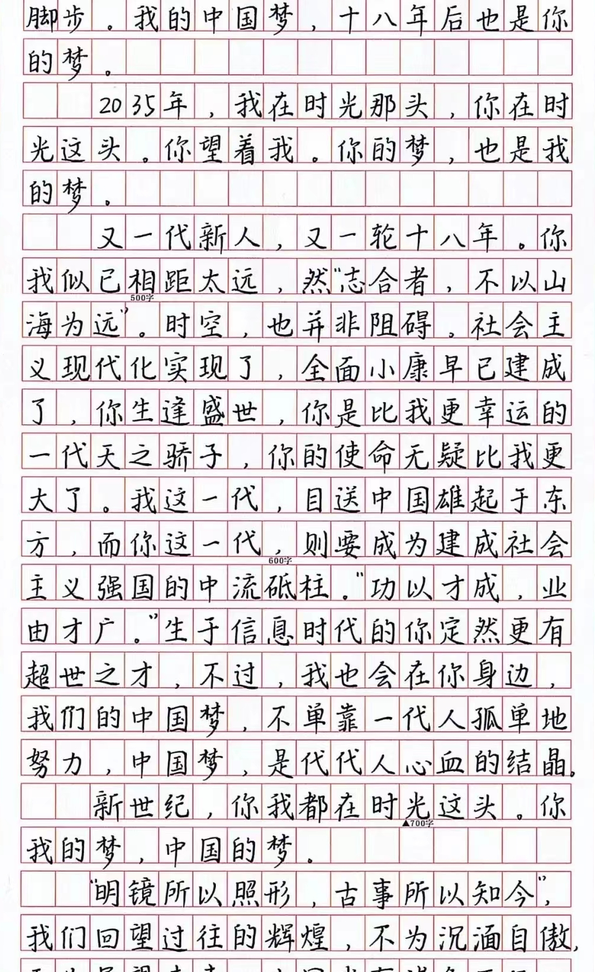 脚步。我的中国梦，十八年后也是你
的梦。
2035年，我在时光那头，你在时
光这头。你望着我。你的梦，也是我
的梦。
又一代新人，又一轮十八年。你
我似已相距太远，然“志合者，不以山
500字
海为远”。时空，也并非阻碍。社会主
义现代化实现了，全面小康早已建成
了，你生逢盛世，你是比我更幸运的
一代天之骄子，你的使命无疑比我更
大了。我这一代，目送中国雄起于东
方，而你这一代，则要成为建成社会
600字
主义强国的中流砥柱。“功以才成，业
由才广。”生于信息时代的你定然更有
超世之才，不过，我也会在你身边，
我们的中国梦，不单靠一代人孤单地
努力，中国梦，是代代人心血的结晶。
新世纪，你我都在时光这头。你
▲700字
我的梦，中国的梦。
“明镜所以照形，古事所以知今”，
我们回望过往的辉煌，不为沉湎自傲，